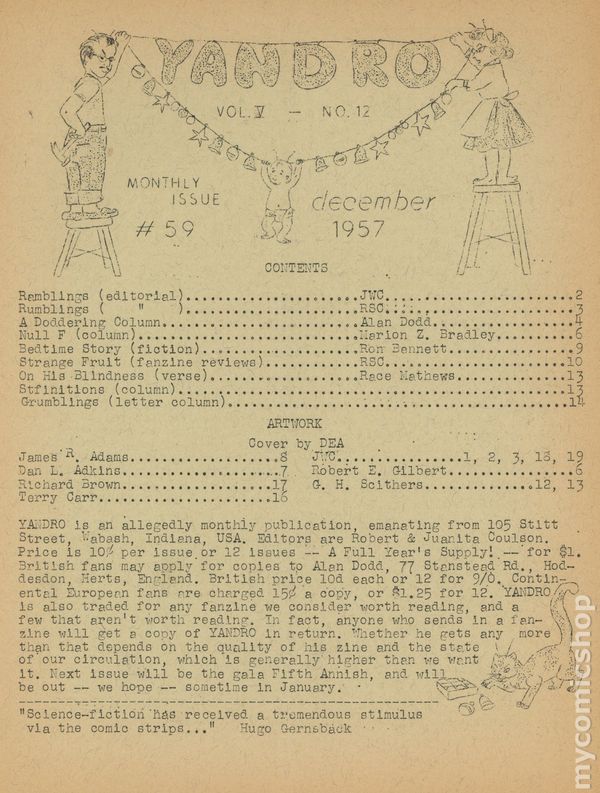 YANDRO
VOL. V — NO. 12
MONTHLY
ISSUE
# 59
december
1957
CONTENTS
Ramblings (editorial)........................JWC..........................2
Rumblings ( " )........................RSC..........................3
A Doddering Column........................Alan Dodd....................4
Null F (column)........................Marion Z. Bradley............6
Bedtime Story (fiction)........................Ron Bennett..................9
Strange Fruit (fanzine reviews)................RSC.........................10
On His Blindness (verse)........................Race Mathews................13
Stfinitions (column)........................................................13
Grumblings (letter column)..................................................14
ARTWORK
Cover by DEA
James R. Adams....................8 JWC..................1, 2, 3, 18, 19
Dan L. Adkins.....................7 Robert E. Gilbert.................6
Richard Brown....................17 G. H. Scithers...............12, 13
Terry Carr.......................16
YANDRO is an allegedly monthly publication, emanating from 105 Stitt
Street, Wabash, Indiana, USA. Editors are Robert & Juanita Coulson.
Price is 10¢ per issue or 12 issues -- A Full Year's Supply! -- for $1.
British fans may apply for copies to Alan Dodd, 77 Stanstead Rd., Hod-
desdon, Herts, England. British price 10d each or 12 for 9/0. Contin-
ental European fans are charged 15¢ a copy, or $1.25 for 12. YANDRO
is also traded for any fanzine we consider worth reading, and a
few that aren't worth reading. In fact, anyone who sends in a fan-
zine will get a copy of YANDRO in return. Whether he gets any more
than that depends on the quality of his zine and the state
of our circulation, which is generally higher than we want
it. Next issue will be the gala Fifth Annish, and will
be out -- we hope -- sometime in January.
"Science-fiction has received a tremendous stimulus
via the comic strips..." Hugo Gernsback
mycomicshop